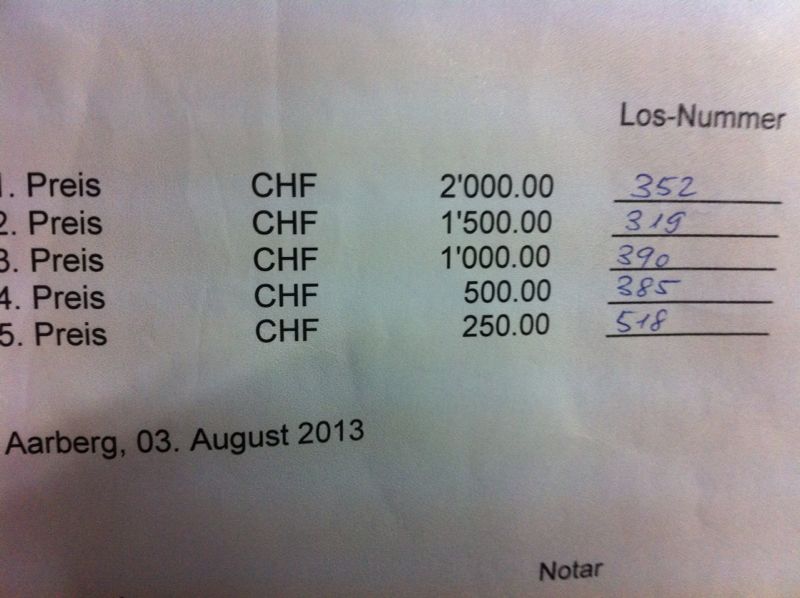 Los-Nummer
1. Preis CHF 2'000.00 352
2. Preis CHF 1'500.00 319
3. Preis CHF 1'000.00 390
4. Preis CHF 500.00 385
5. Preis CHF 250.00 518
Aarberg, 03. August 2013
Notar